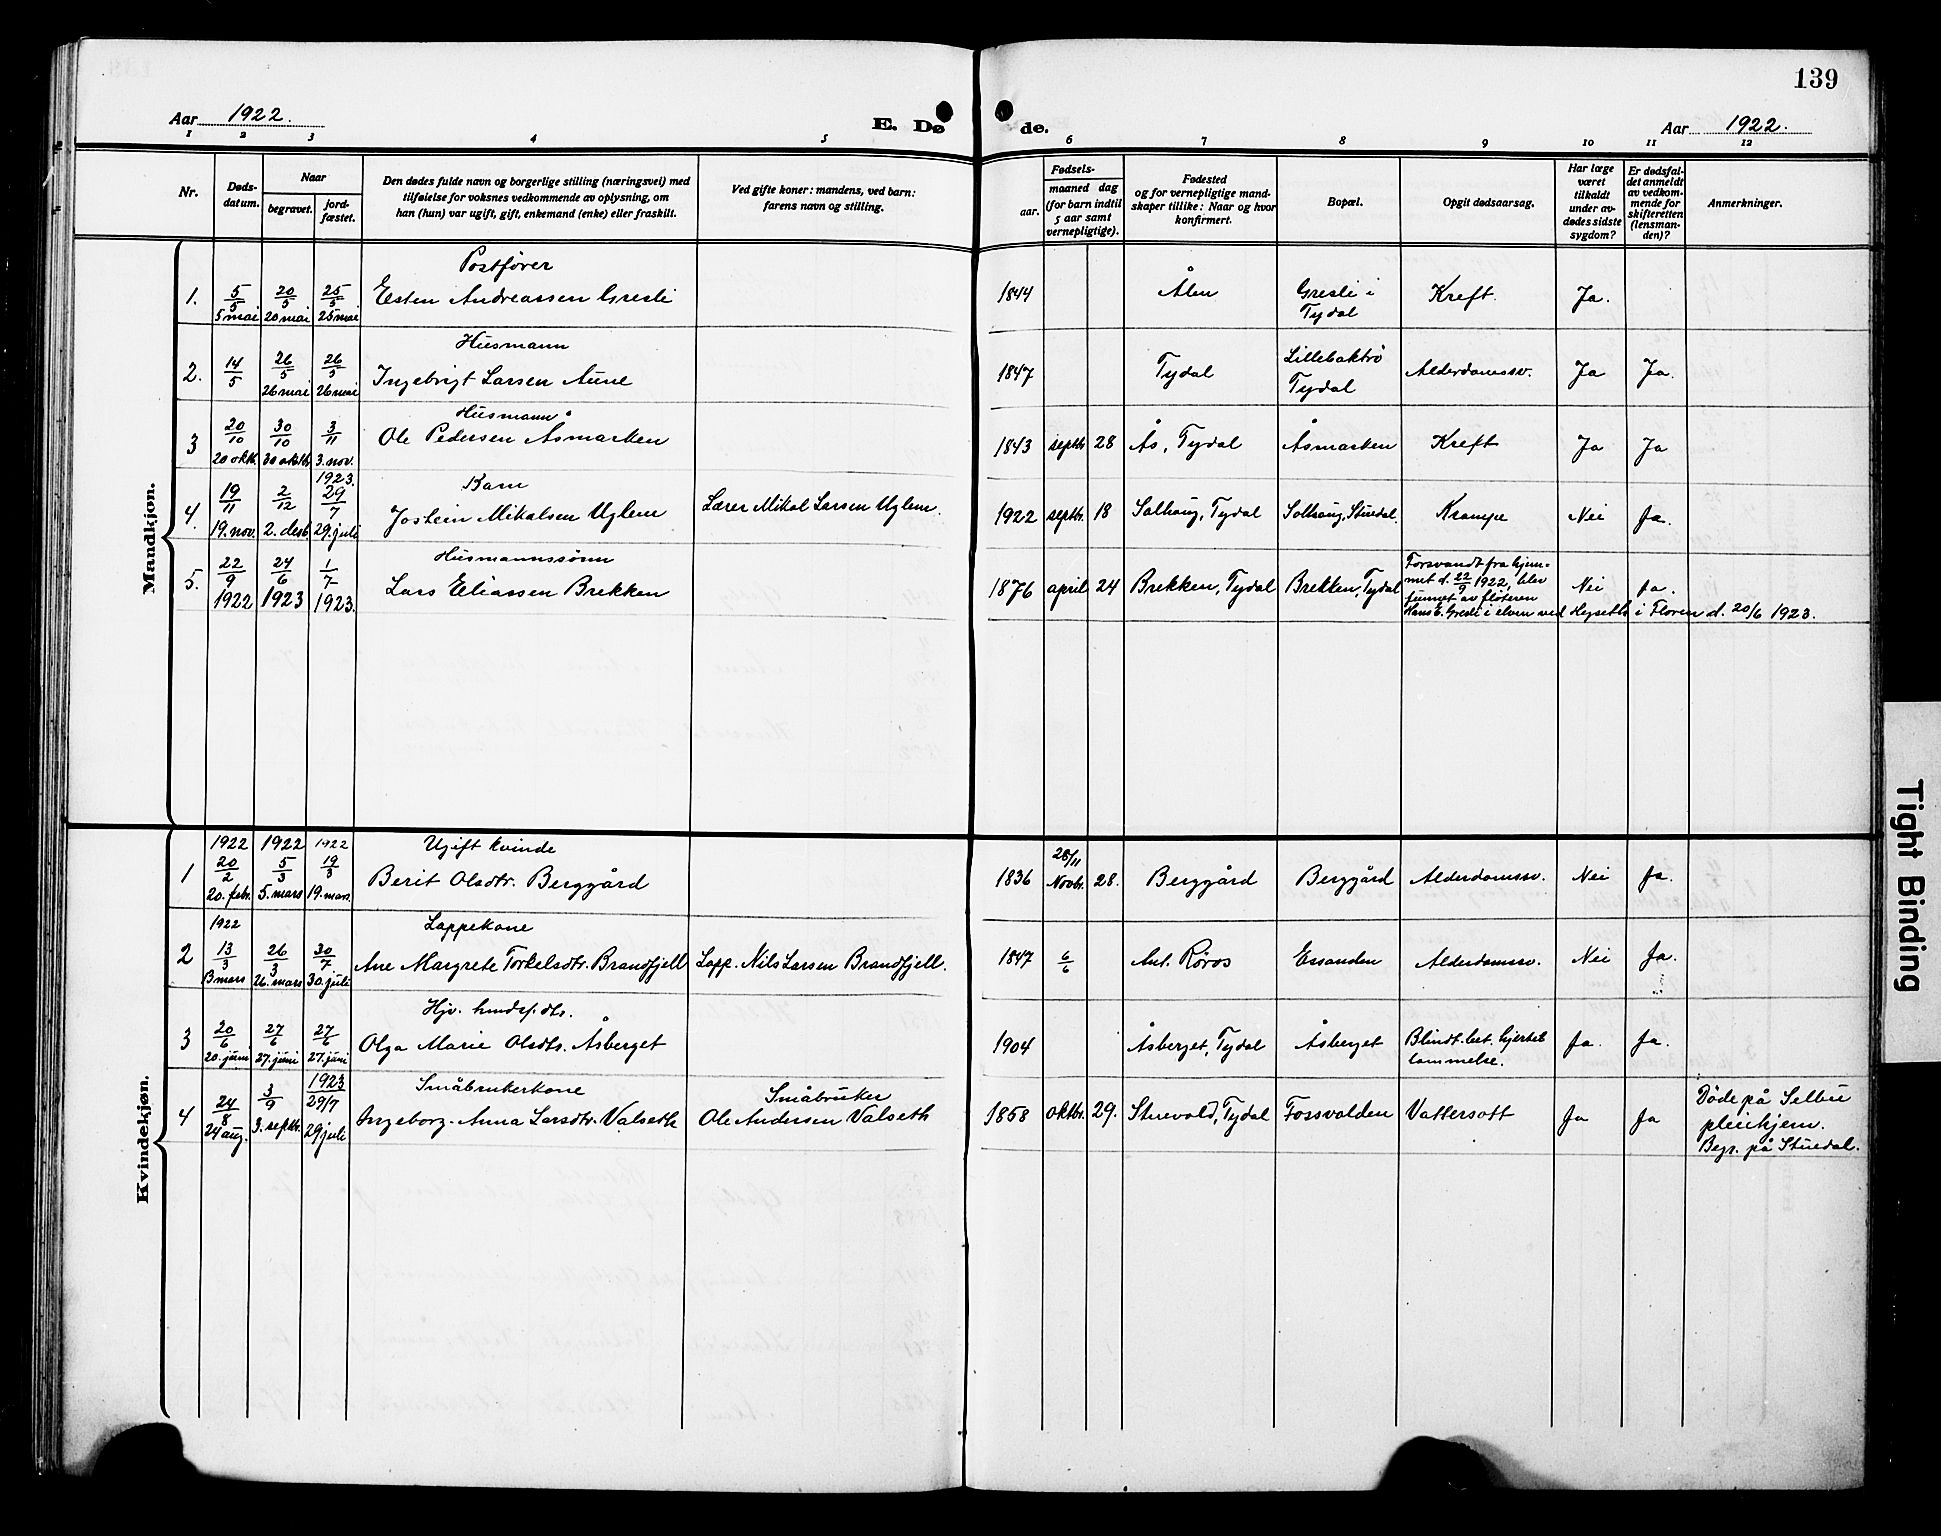 139
Aar 1922.
E. Dø de.
Aar 1922.
1 2 3 4 5 6 7 8 9 10 11 12
Nr.
Døds-
datum.
Naar
begravet.
jord-
fæstet.
Den dødes fulde navn og borgerlige stilling (næringsvei) med
tilføielse for voksnes vedkommende av oplysning, om
han (hun) var ugift, gift, enkemand (enke) eller fraskilt.
Ved gifte koner: mandens, ved barn:
farens navn og stilling.
Fødsels-
aar.
maaned dag
(for barn indtil
5 aar samt
vernepligtige).
Fødested
og for vernepligtige mand-
skaper tillike: Naar og hvor
konfirmert.
Bopæl.
Opgit dødsaarsag.
Har læge
været
tilkaldt
under av-
dødes sidste
sygdom?
Er dødsfal-
det anmeldt
av vedkom-
mende for
skifteretten
(lensman-
den)?
Anmerkninger.
Mandkjøn.
Postfører
1. 5/5 20/5 25/5 Esten Andreassen Gresli 1844 Ålen Gresli i Kreft. Ja.
5 mai 20 mai 25 mai Tydal
Husmann
2. 14/5 26/5 26/5 Ingebrigt Larsen Aune 1847 Tydal Lillebaktrø Alderdomssv. Ja Ja.
26 mai 26 mai Tydal
Husmann
3 20/10 30/10 3/11 Ole Pedersen Åsmarken 1843 septb. 28 Ås, Tydal Åsmarken Kreft Ja Ja
20 oktb. 30 oktb. 3. nov.
1923.
Barn
4. 19/11 2/12 29/7 Jostein Mikalsen Uglem Lærer Mikal Larsen Uglem. 1922 septb. 18 Solhaug, Tydal Solhaug, Stuedal. Krampe Nei Ja.
19. nov. 2. desb. 29. juli
Husmannssønn
5. 22/9 24/6 1/7 Lars Eliassen Brekken 1876 april 24 Brekken, Tydal Brekken, Tydal Forsvandt fra hjem-
1922 1923 1923. met d. 22/9 1922, blev Nei Ja.
funnet av fløteren
Hans E. Gresli i elven ved Hyseth i Floren d. 20/6 1923.
Kvindekjøn.
1922 1922 1922 Ugift kvinde 28/11
1 20/2 5/3 19/3 Berit Olsdtr. Berggård 1836 Novbr. 28. Berggård Berggård Alderdomssv. Nei Ja.
20. febr. 5. mars 19. mars.
1922 Lappekone
2 13/3 26/3 30/7 Ane Margrete Torkelsdtr. Brandfjell Lapp. Nils Larsen Brandfjell. 1847 6/6 Ant. Røros Essanden Alderdomssv. Nei Ja.
13 mars 26. mars 30. juli
Hjv. husdsf. dtr.
3 20/6 27/6 27/6 Olga Marie Olsdtr. Åsberget 1904 Åsberget, Tydal Åsberget Blindt.bet. hjertel- Ja. Ja.
20. juni 27. juni 27. juni lammelse.
1923 Småbrukerkone Småbruker
4 24/8 3/9 29/7 Ingeborg-Anna Larsdtr. Valseth Ole Andersen Valseth 1858 oktbr. 29. Stuevold, Tydal Fossvolden Vattersott Ja Ja Døde på Selbu
24 aug. 3. septb. 29 juli pleiehjem.
Begr. på Stuedal.
Tight Binding